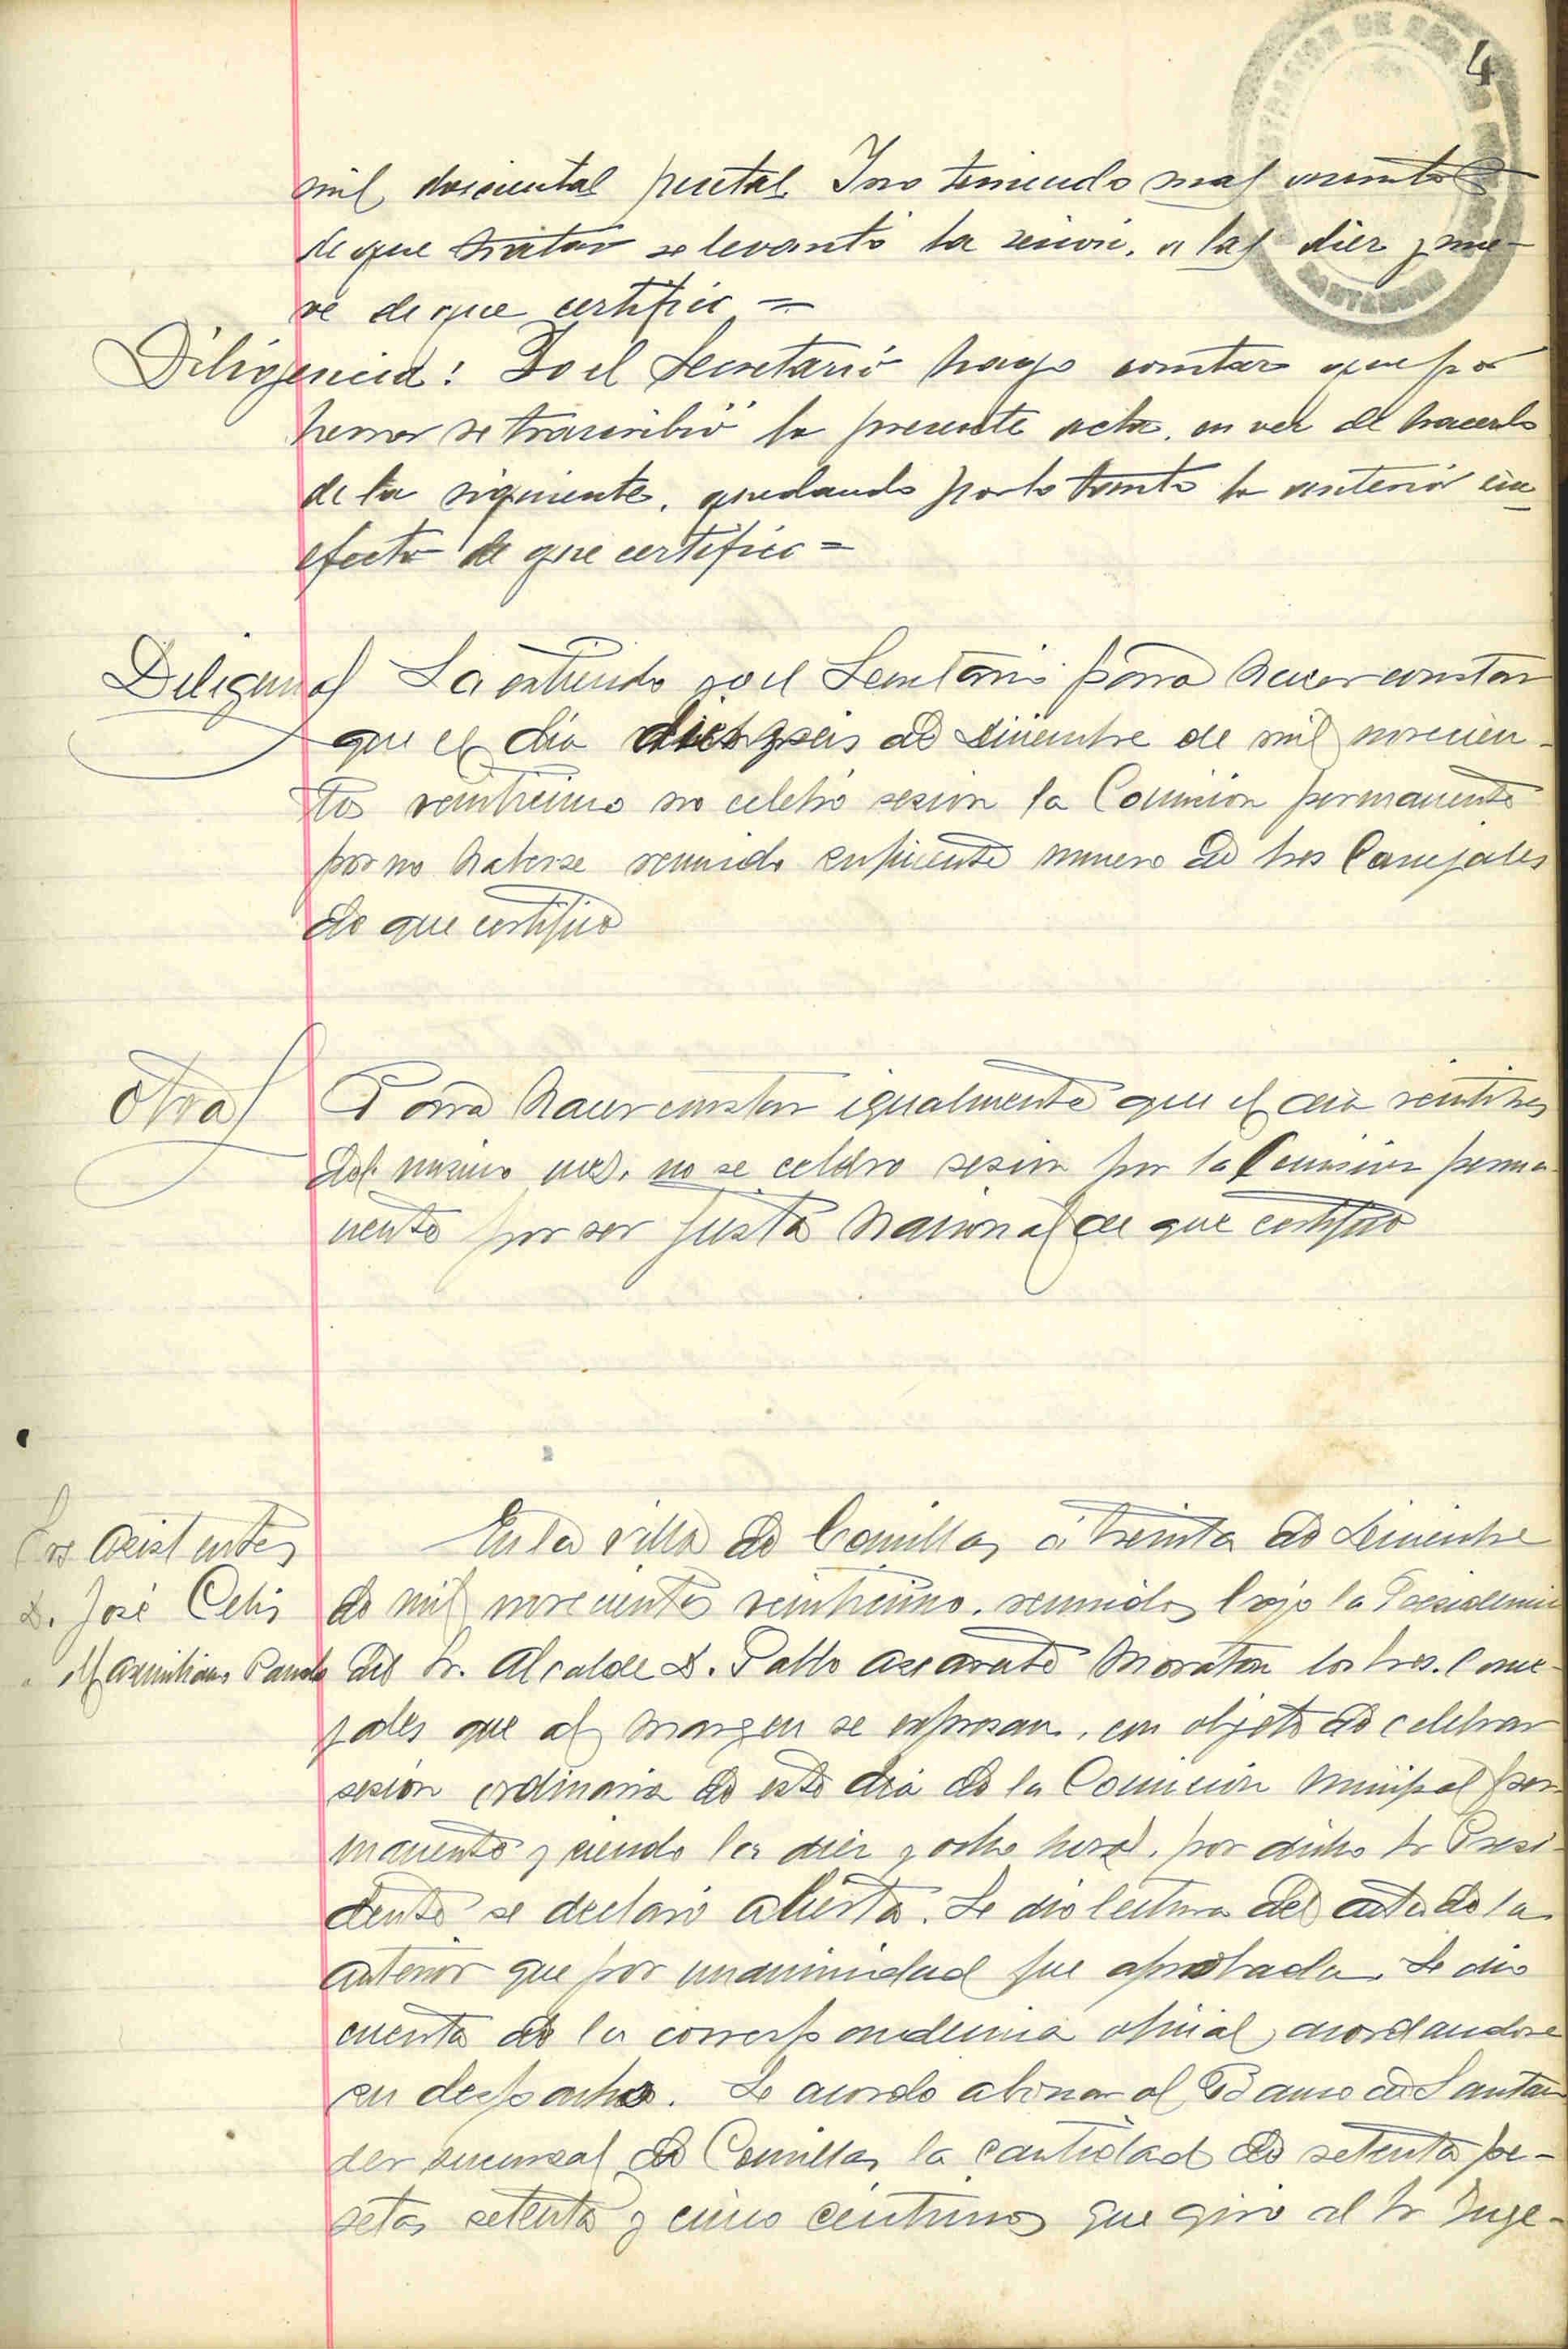 4
mil doscientas pesetas. Y no teniendo mas asuntos
de que tratar se levantó la sesión, a las diez y nue-
ve de que certifico =
Diligencia: Yo el Secretario hago constar que por
herror se trascribió la presente acta, en vez de hacerlo
de la siguiente, quedando por lo tanto la anterior sin
efecto de que certifico =
Diligencia La extiendo yo el Secretario para hacer constar
que el día diez y seis de Diciembre de mil novecien-
tos veinticinco no celebró sesión la Comisión permanente
por no haberse reunido suficiente numero de Sres Concejales
de que certifico
Otra Para hacer constar igualmente que el dia veintitres
del mismo mes, no se celebro sesion por la Comision perma-
nente por ser fiesta Nacional de que certifico
Sres Asistentes
D. José Celis
" Maximiliano Pando
En la villa de Comillas a treinta de Diciembre
de mil novecientos veinticinco, reunidos bajo la Presidencia
del Sr. Alcalde D. Pablo Azcarate Moraton los Sres. Conce-
jales que al margen se expresan, con objeto de celebrar
sesión ordinaria de este día de la Comisión Municipal per-
manente y siendo las diez y ocho horas, por dicho Sr Presi-
dente se declaró abierta. Se dio lectura del acta de la
anterior que por unanimidad fue aprobada. Se dio
cuenta de la correspondencia oficial, acordandose
su despacho. Se acordo abonar al Banco de Santan
der sucursal de Comillas la cantidad de setenta pe-
setas setenta y cinco céntimos que giro al Sr Inge-